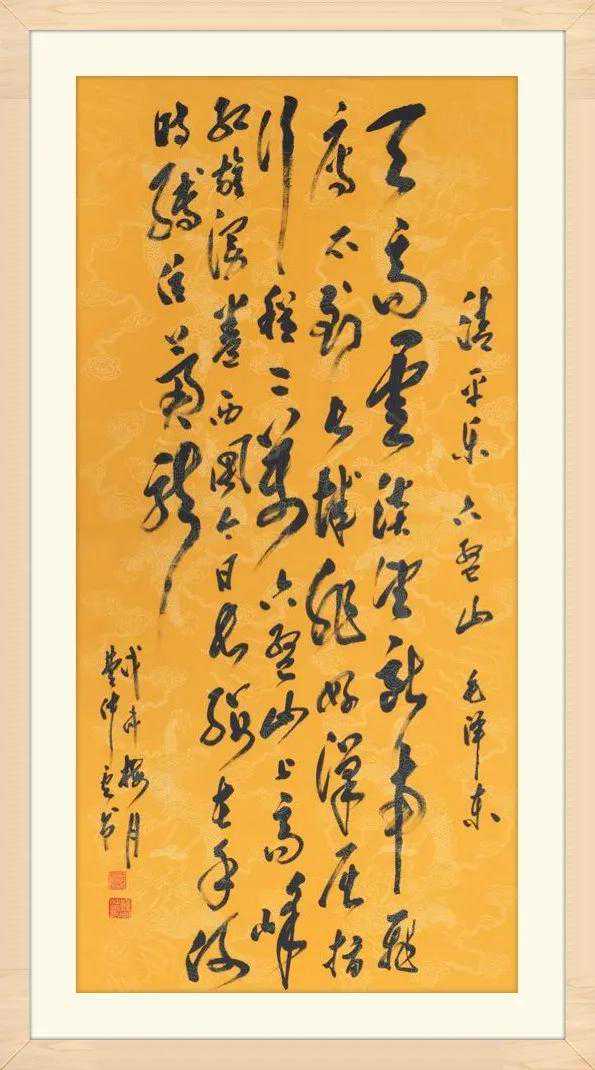 清平乐 六盘山 毛泽东
天高雲淡望断南飛
雁不到长城非好漢屈指
行程二万六盘山上高峰
红旗漫卷西風今日长缨在手何
時縛住蒼龍
月